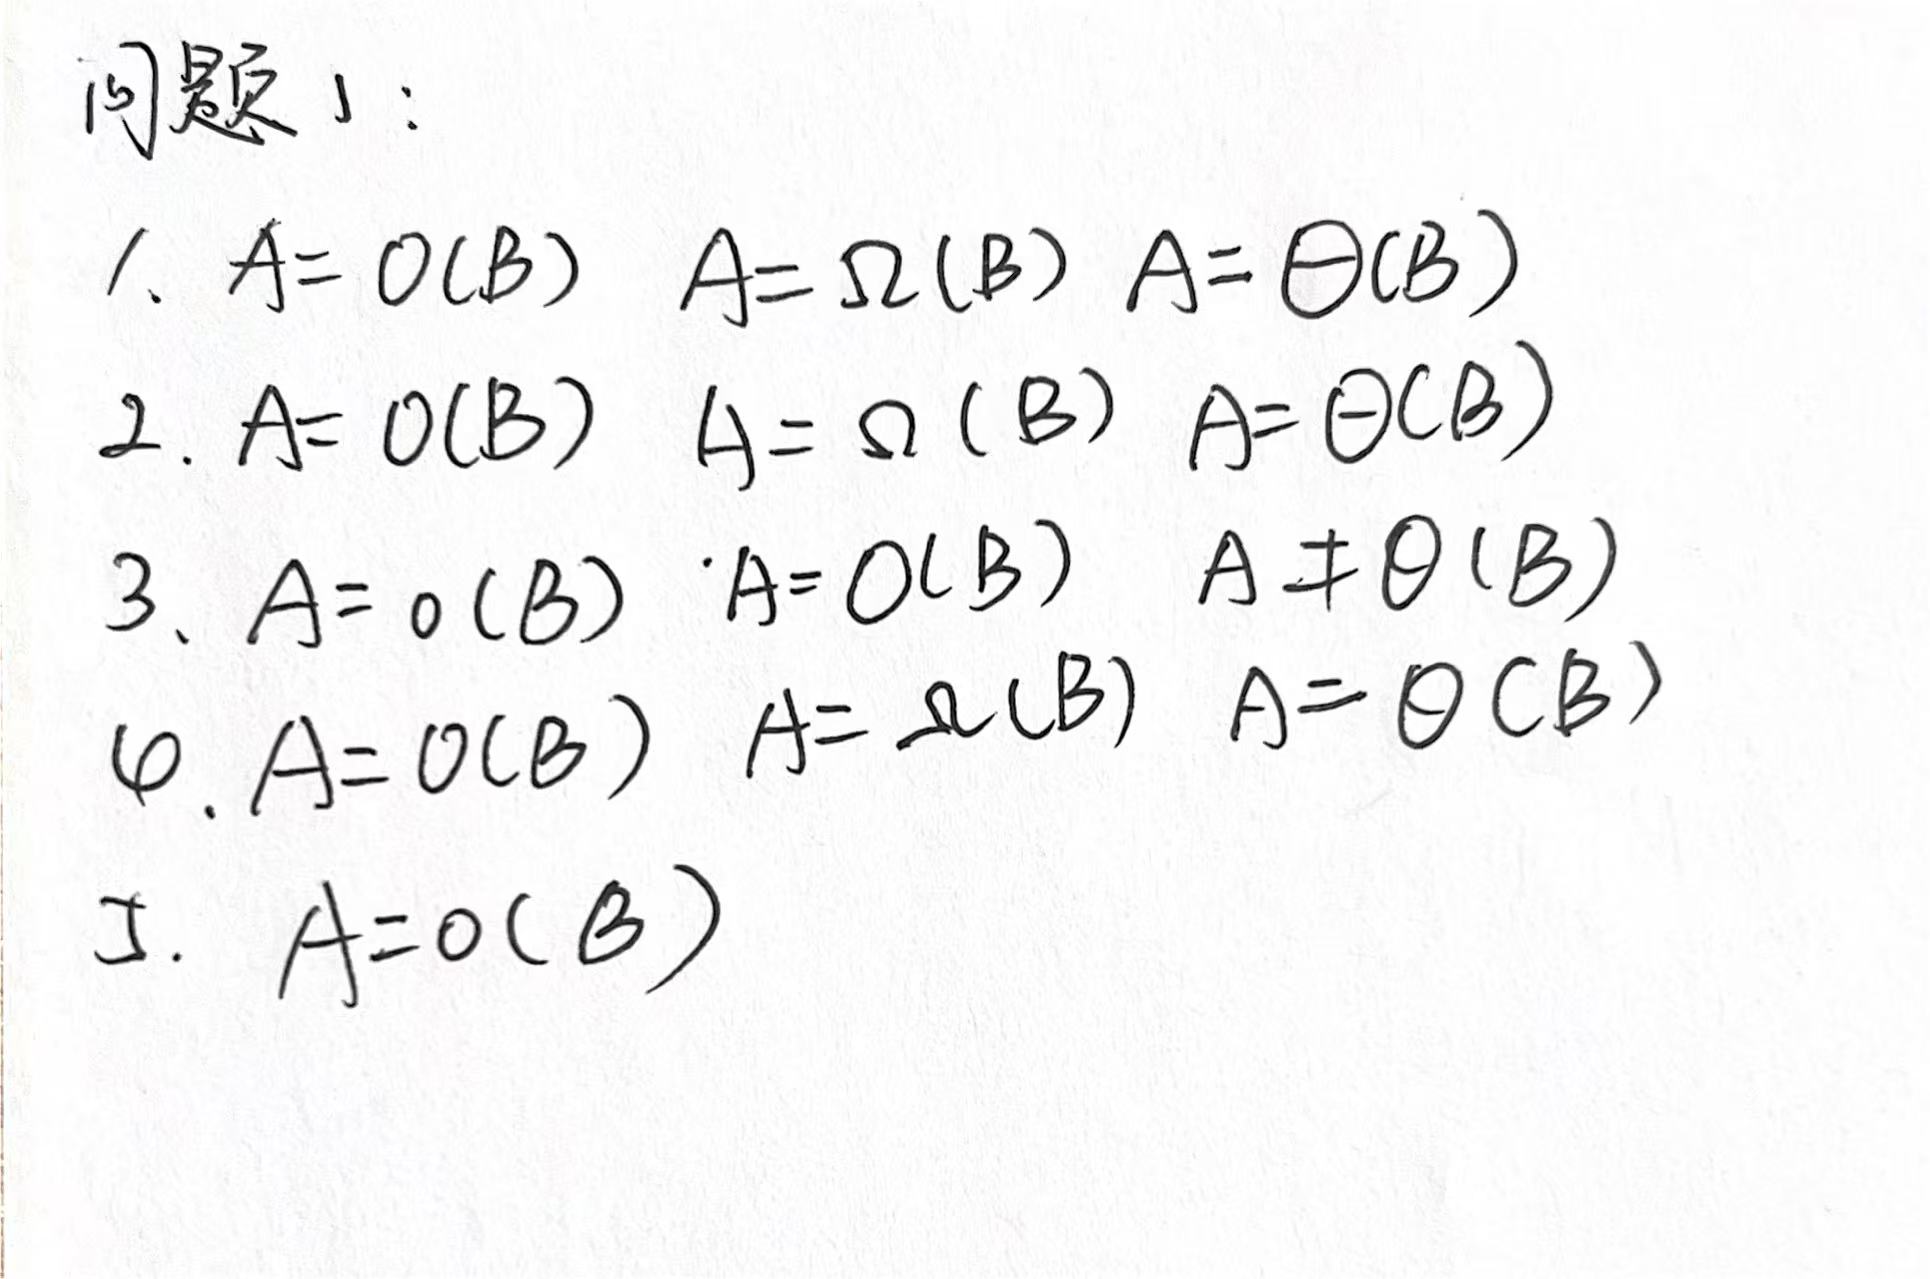 问题1:
1. A=O(B) A=Ω(B) A=Θ(B)
2. A=O(B) A=Ω(B) A=Θ(B)
3. A=o(B) A=O(B) A≠Θ(B)
4. A=O(B) A=Ω(B) A=Θ(B)
5. A=o(B)